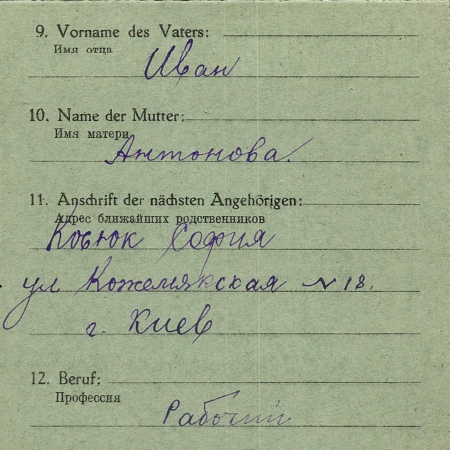 9. Vorname des Vaters:
Имя отца
Иван
10. Name der Mutter:
Имя матери
Антонова.
11. Anschrift der nächsten Angehörigen:
Адрес ближайших родственников
Ковюк София
ул Кожемякская N 18.
г. Киев
12. Beruf:
Профессия
Рабочий